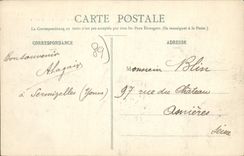 CARTE POSTALE
La Correspondance au recto n'est pas acceptée par tous les Pays Etrangers (Se renseigner à la Poste)
CORRESPONDANCE
ADRESSE
89
Bon souvenir
à Sermizelles (Yonne)
Monsieur Blin
97 rue du Château
Asnières
Seine